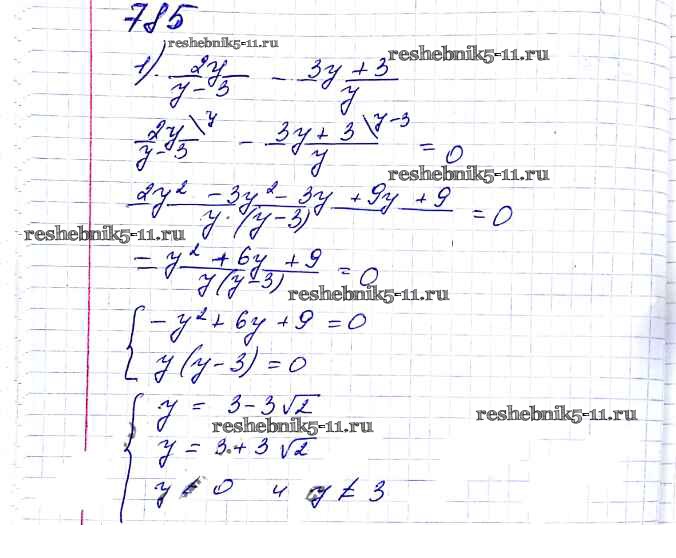 785
reshebnik5-11.ru
1) 2y/(y-3) - (3y+3)/y
reshebnik5-11.ru
2y/(y-3) \y - (3y+3)/y \y-3 = 0
reshebnik5-11.ru
(2y² - 3y² - 3y + 9y + 9)/(y·(y-3)) = 0
reshebnik5-11.ru
= (y² + 6y + 9)/(y(y-3)) = 0
reshebnik5-11.ru
{ -y² + 6y + 9 = 0
y(y-3) = 0
{ y = 3 - 3√2
reshebnik5-11.ru
reshebnik5-11.ru
y = 3 + 3√2
y ≠ 0 и y ≠ 3